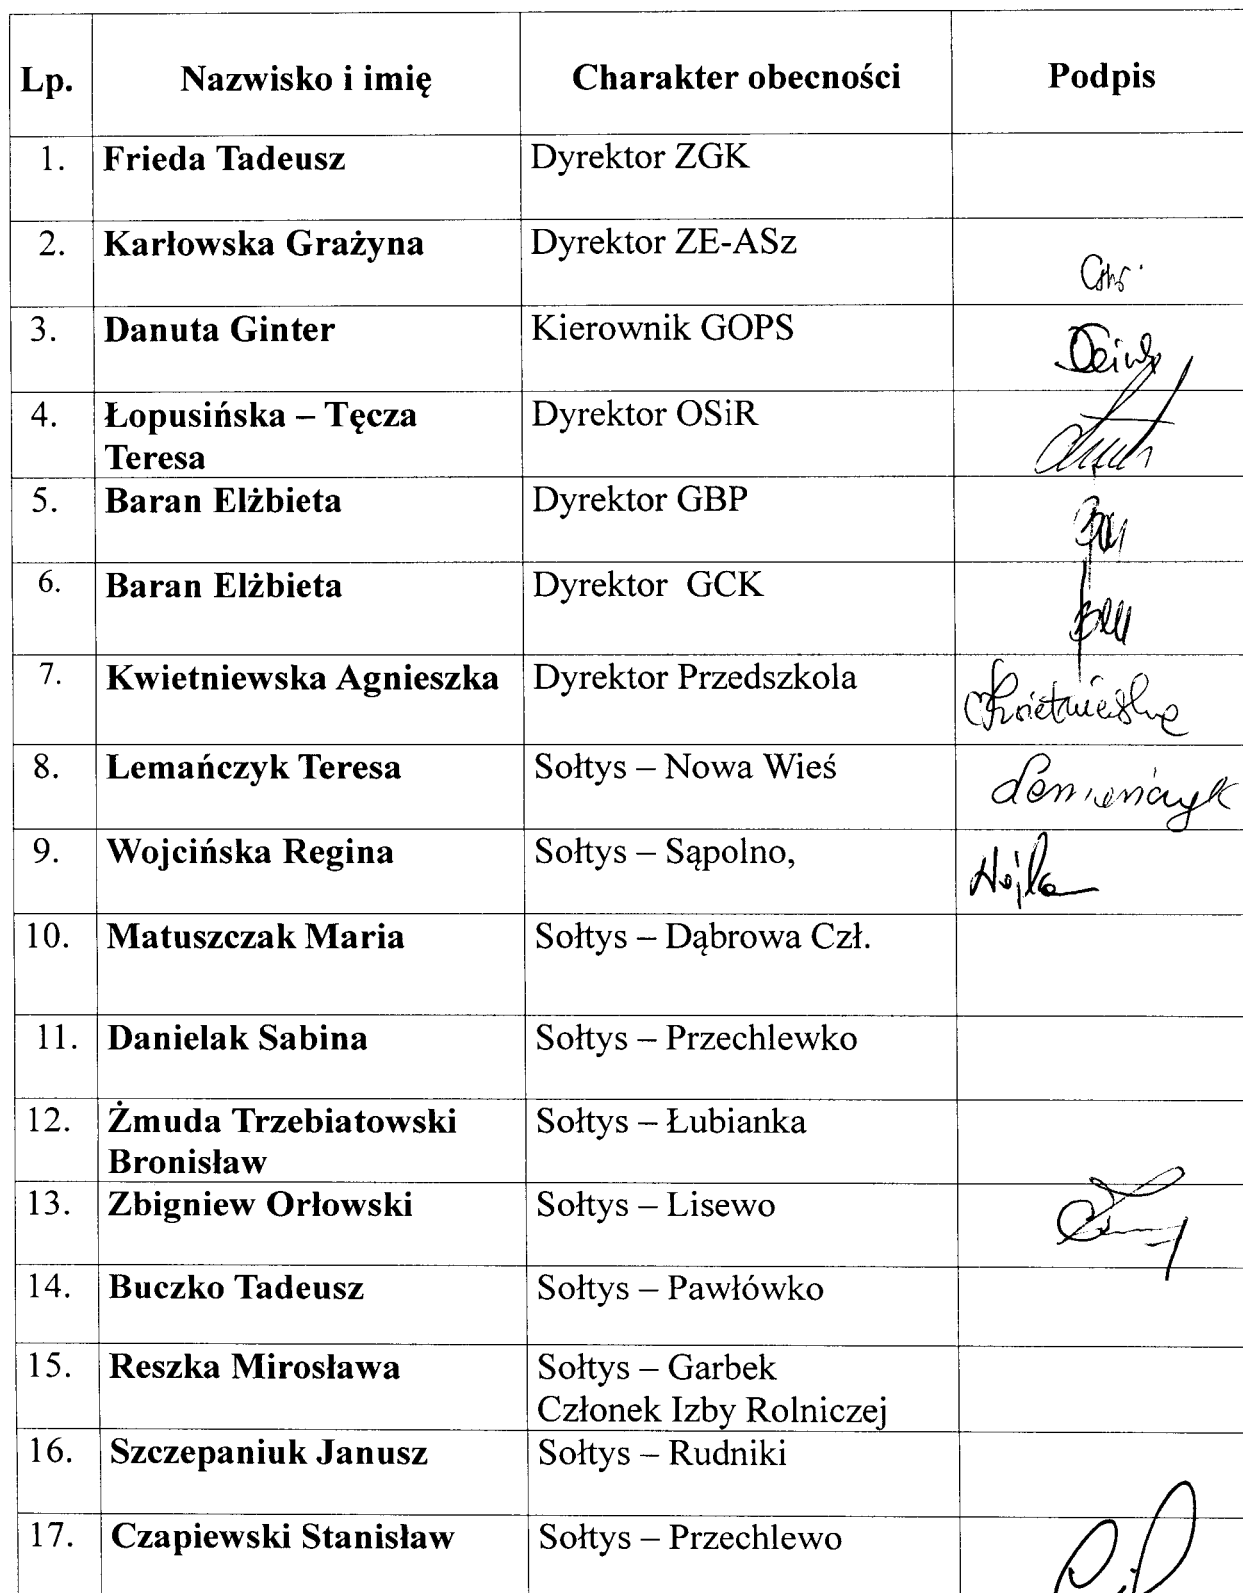 Lp. Nazwisko i imię Charakter obecności Podpis
1. Frieda Tadeusz Dyrektor ZGK
2. Karłowska Grażyna Dyrektor ZE-ASz
3. Danuta Ginter Kierownik GOPS
4. Łopusińska – Tęcza Dyrektor OSiR
Teresa
5. Baran Elżbieta Dyrektor GBP
6. Baran Elżbieta Dyrektor GCK
7. Kwietniewska Agnieszka Dyrektor Przedszkola Kwietniewska
8. Lemańczyk Teresa Sołtys – Nowa Wieś Lemańczyk
9. Wojcińska Regina Sołtys – Sąpolno,
10. Matuszczak Maria Sołtys – Dąbrowa Czł.
11. Danielak Sabina Sołtys – Przechlewko
12. Żmuda Trzebiatowski Sołtys – Łubianka
Bronisław
13. Zbigniew Orłowski Sołtys – Lisewo
14. Buczko Tadeusz Sołtys – Pawłówko
15. Reszka Mirosława Sołtys – Garbek
Członek Izby Rolniczej
16. Szczepaniuk Janusz Sołtys – Rudniki
17. Czapiewski Stanisław Sołtys – Przechlewo